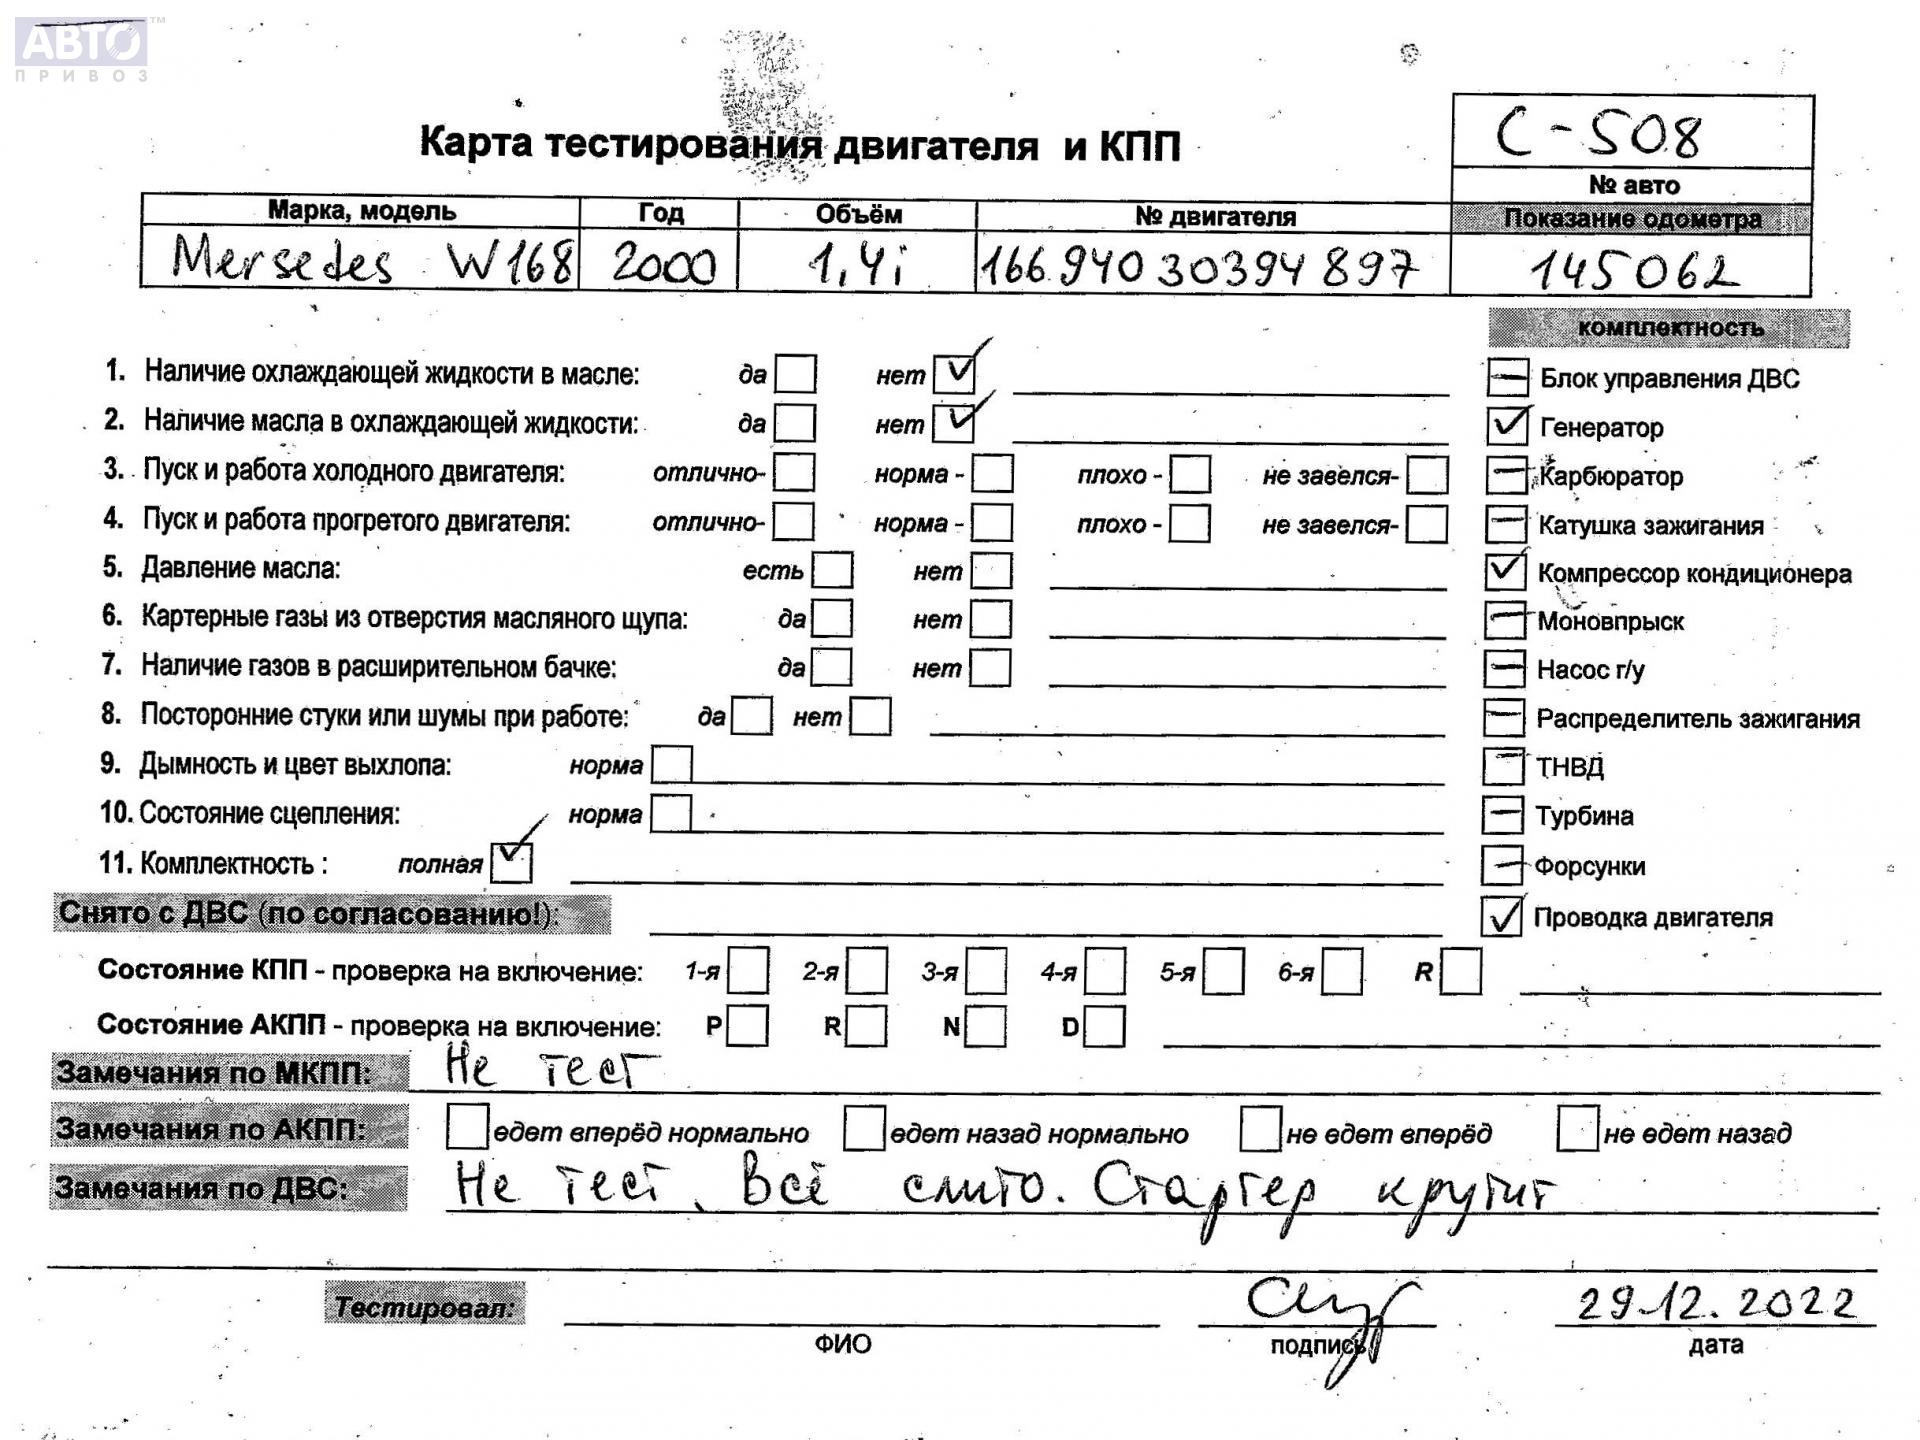 АВТО™
ПРИВОЗ
С-508
Карта тестирования двигателя и КПП
№ авто
Марка, модель Год Объём № двигателя Показание одометра
Mersedes W168 2000 1,4i 166.940 30394897 145062
комплектность
1. Наличие охлаждающей жидкости в масле: да нет ✓
— Блок управления ДВС
2. Наличие масла в охлаждающей жидкости: да нет ✓
✓ Генератор
3. Пуск и работа холодного двигателя: отлично- норма - плохо - не завелся-
— Карбюратор
4. Пуск и работа прогретого двигателя: отлично- норма - плохо - не завелся-
— Катушка зажигания
5. Давление масла: есть нет
✓ Компрессор кондиционера
6. Картерные газы из отверстия масляного щупа: да нет
— Моновпрыск
7. Наличие газов в расширительном бачке: да нет
— Насос г/у
8. Посторонние стуки или шумы при работе: да нет
— Распределитель зажигания
9. Дымность и цвет выхлопа: норма
— ТНВД
10. Состояние сцепления: норма
— Турбина
11. Комплектность : полная ✓
— Форсунки
Снято с ДВС (по согласованию!):
✓ Проводка двигателя
Состояние КПП - проверка на включение: 1-я 2-я 3-я 4-я 5-я 6-я R
Состояние АКПП - проверка на включение: P R N D
Замечания по МКПП: Не тест
Замечания по АКПП: едет вперёд нормально едет назад нормально не едет вперёд не едет назад
Замечания по ДВС: Не тест. Всё слито. Стартер крутит
Тестировал: 29.12.2022
ФИО подпись дата